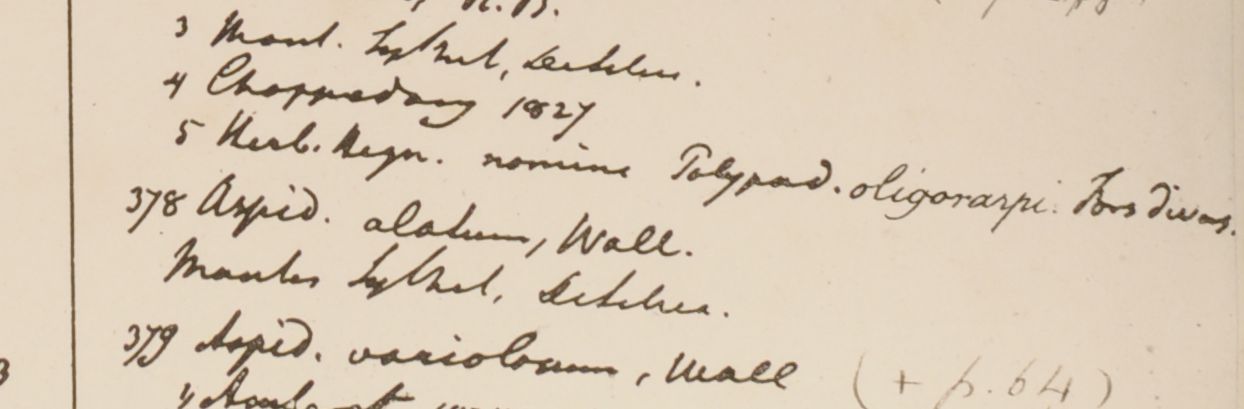 H.B.
3 Mont. Sylhet, DeSilva.
4 Chappedong 1827
5 Herb. Heyn. nomine Polypod. oligocarpi. Fors divers.
378 Aspid. alatum, Wall.
Montes Sylhet, DeSilva.
379 Aspid. variolosum, Wall (+ p. 64)